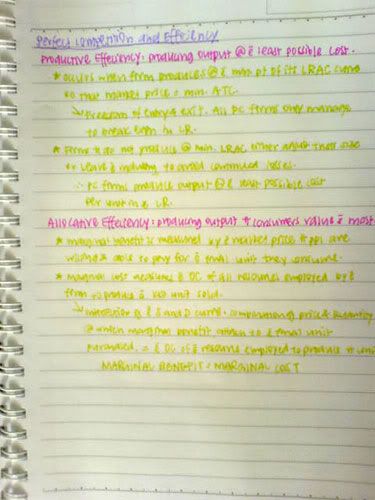 Perfect Competition and Efficiency
Productive Efficiency: producing output @ ē least possible cost.
* occurs when firm produces @ ē min. pt of its LRAC curve
so that market price = min. ATC.
↳ Freedom of entry & exit. All PC firms only manage
to break even in LR.
* Firms t do not produce @ min. LRAC either adjust their size
or leave ē industry to avoid continued losses.
∴ PC firms produce output @ ē least possible cost
per unit in ē LR.
Allocative Efficiency: producing output t consumers value ē most
* marginal benefit is measured by ē market price t ppl are
willing & able to pay for ē final unit they consume.
* marginal cost measures ē OC of all resources employed by ē
firm to produce ē last unit sold.
↳ intersection of ē S and D curve, price & quantity
@ which marginal benefit to ē final unit
purchased, = ē OC of ē resources employed to produce t unit
MARGINAL BENEFIT = MARGINAL COST